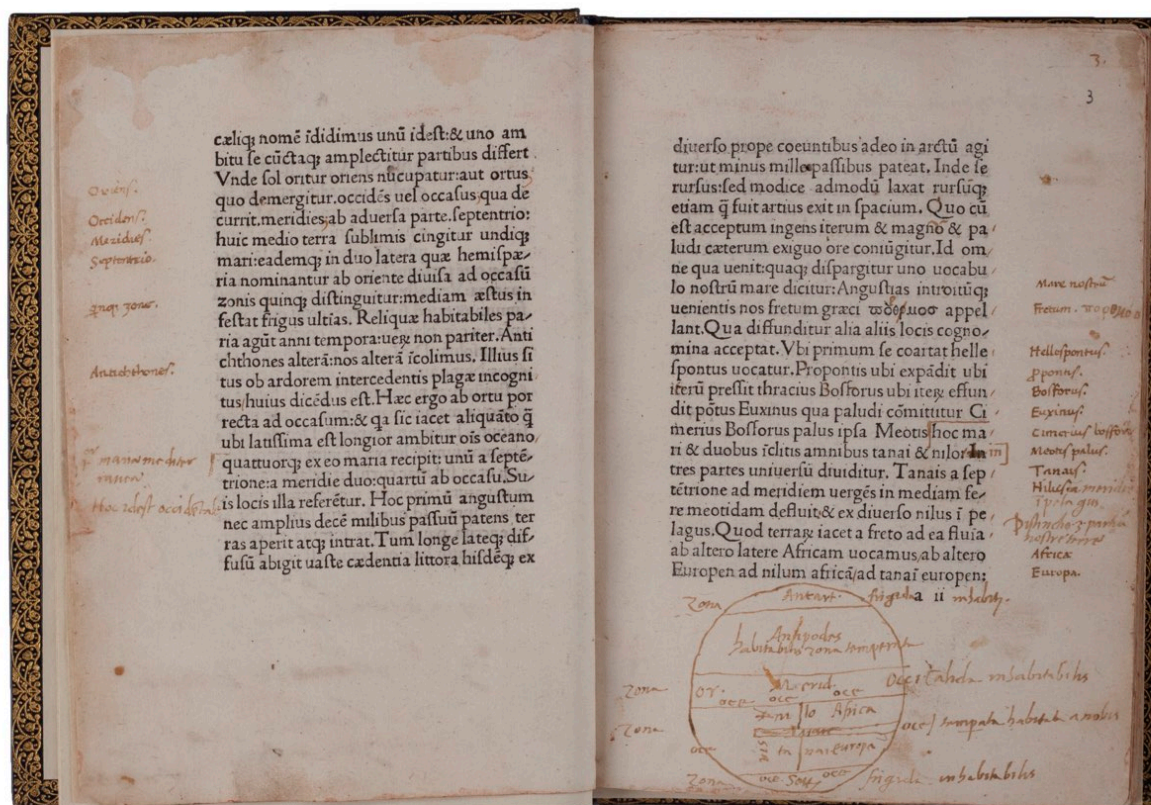 cælıq; nomē īdidimus unū idest:& uno am
bitu se cūctaq; amplectitur partibus differt.
Vnde sol oritur oriens nūcupatur:aut ortus
quo demergitur.occidēs uel occasus,qua de
currit.meridies,ab aduersa parte.septentrio:
huic medio terra sublimis cingitur undiq;
mari:eademq; in duo latera quæ hemispæ/
ria nominantur ab oriente diuisa ad occasū
zonis quinq; distinguitur:mediam æstus in
festat frigus ultias. Reliquæ habitabiles pa/
ria agūt anni tempora:ueꝝ non pariter. Anti
chthones alterā:nos alterā īcolimus. Illius si
tus ob ardorem intercedentis plagæ incogni
tus/huius dicēdus est. Hæc ergo ab ortu por
recta ad occasum:& qa sic iacet aliquāto q̄
ubi latissima est longior ambitur oīs oceano
quattuorq; ex eo maria recipit: unū a septē/
trione:a meridie duo:quartū ab occasu. Su/
is locis illa referētur. Hoc primū angustum
nec amplius decē milibus passuū patens ter
ras aperit atq; intrat. Tum longe lateq; dif/
fusū abigit uaste cædentia littora hisdēq; ex
Oriens.
Occidens.
Meridies.
Septentrio.
Antichthones.
3.
3
diuerso prope coeuntibus adeo in arctū agi
tur:ut minus mille passibus pateat. Inde se
rursus:sed modice admodū laxat rursūq;
etiam q̄ fuit artius exit in spacium. Quo cū
est acceptum ingens iterum & magno & pa/
ludi cæterum exiguo ore coniūgitur. Id om/
ne qua uenit:quaq; dispargitur uno uocabu
lo nostrū mare dicitur: Angustias introitūq;
uenientis nos fretum græci appel
lant. Qua diffunditur alia aliis locis cogno/
mina acceptat. Vbi primum se coartat helle
spontus uocatur. Propontis ubi expādit ubi
iterū pressit thracius Bosforus ubi iteꝝ effun/
dit pōtus Euxinus qua paludi cōmittitur Ci
merius Bosforus palus ipsa Meotis hoc ma/
ri & duobus īclitis amnibus tanai & nilo In
tres partes uniuersū diuiditur. Tanais a sep/
tētrione ad meridiem uergēs in mediam fe/
re meotidam defluit:& ex diuerso nilus ī pe/
lagus. Quod terraꝝ iacet a freto ad ea fluīa
ab altero latere Africam uocamus,ab altero
Europen ad nilum africā/ad tanaī europen:
a ii
Mare nostrū
Fretum.
Hellespontus.
Bosforus.
Euxinus.
Cimerius bosforus
Meotis palus.
Tanais.
Africa
Europa.
Zona Antart. frigida inhabit.
Antipodes
habitabilis zona temperata
Zona or. Merid. occ calida inhabitabilis
oce oce oce
Zona Africa occ temperata habitata a nobis
oce europa
Zona oce Sept oce frigida inhabitabilis